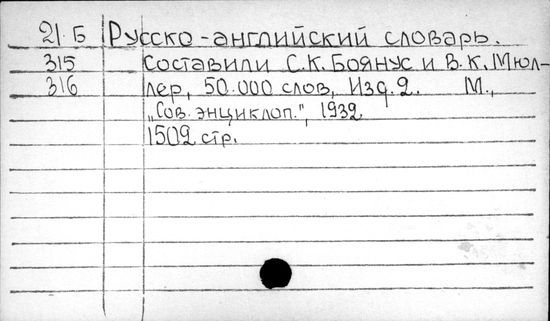 21 Б Русско-английский словарь.
315 Составили С.К. Боянус и В.К. Мюл-
316 лер, 50.000 слов, Изд. 2. М.,
„Сов. энциклоп.", 1932
1502 стр.